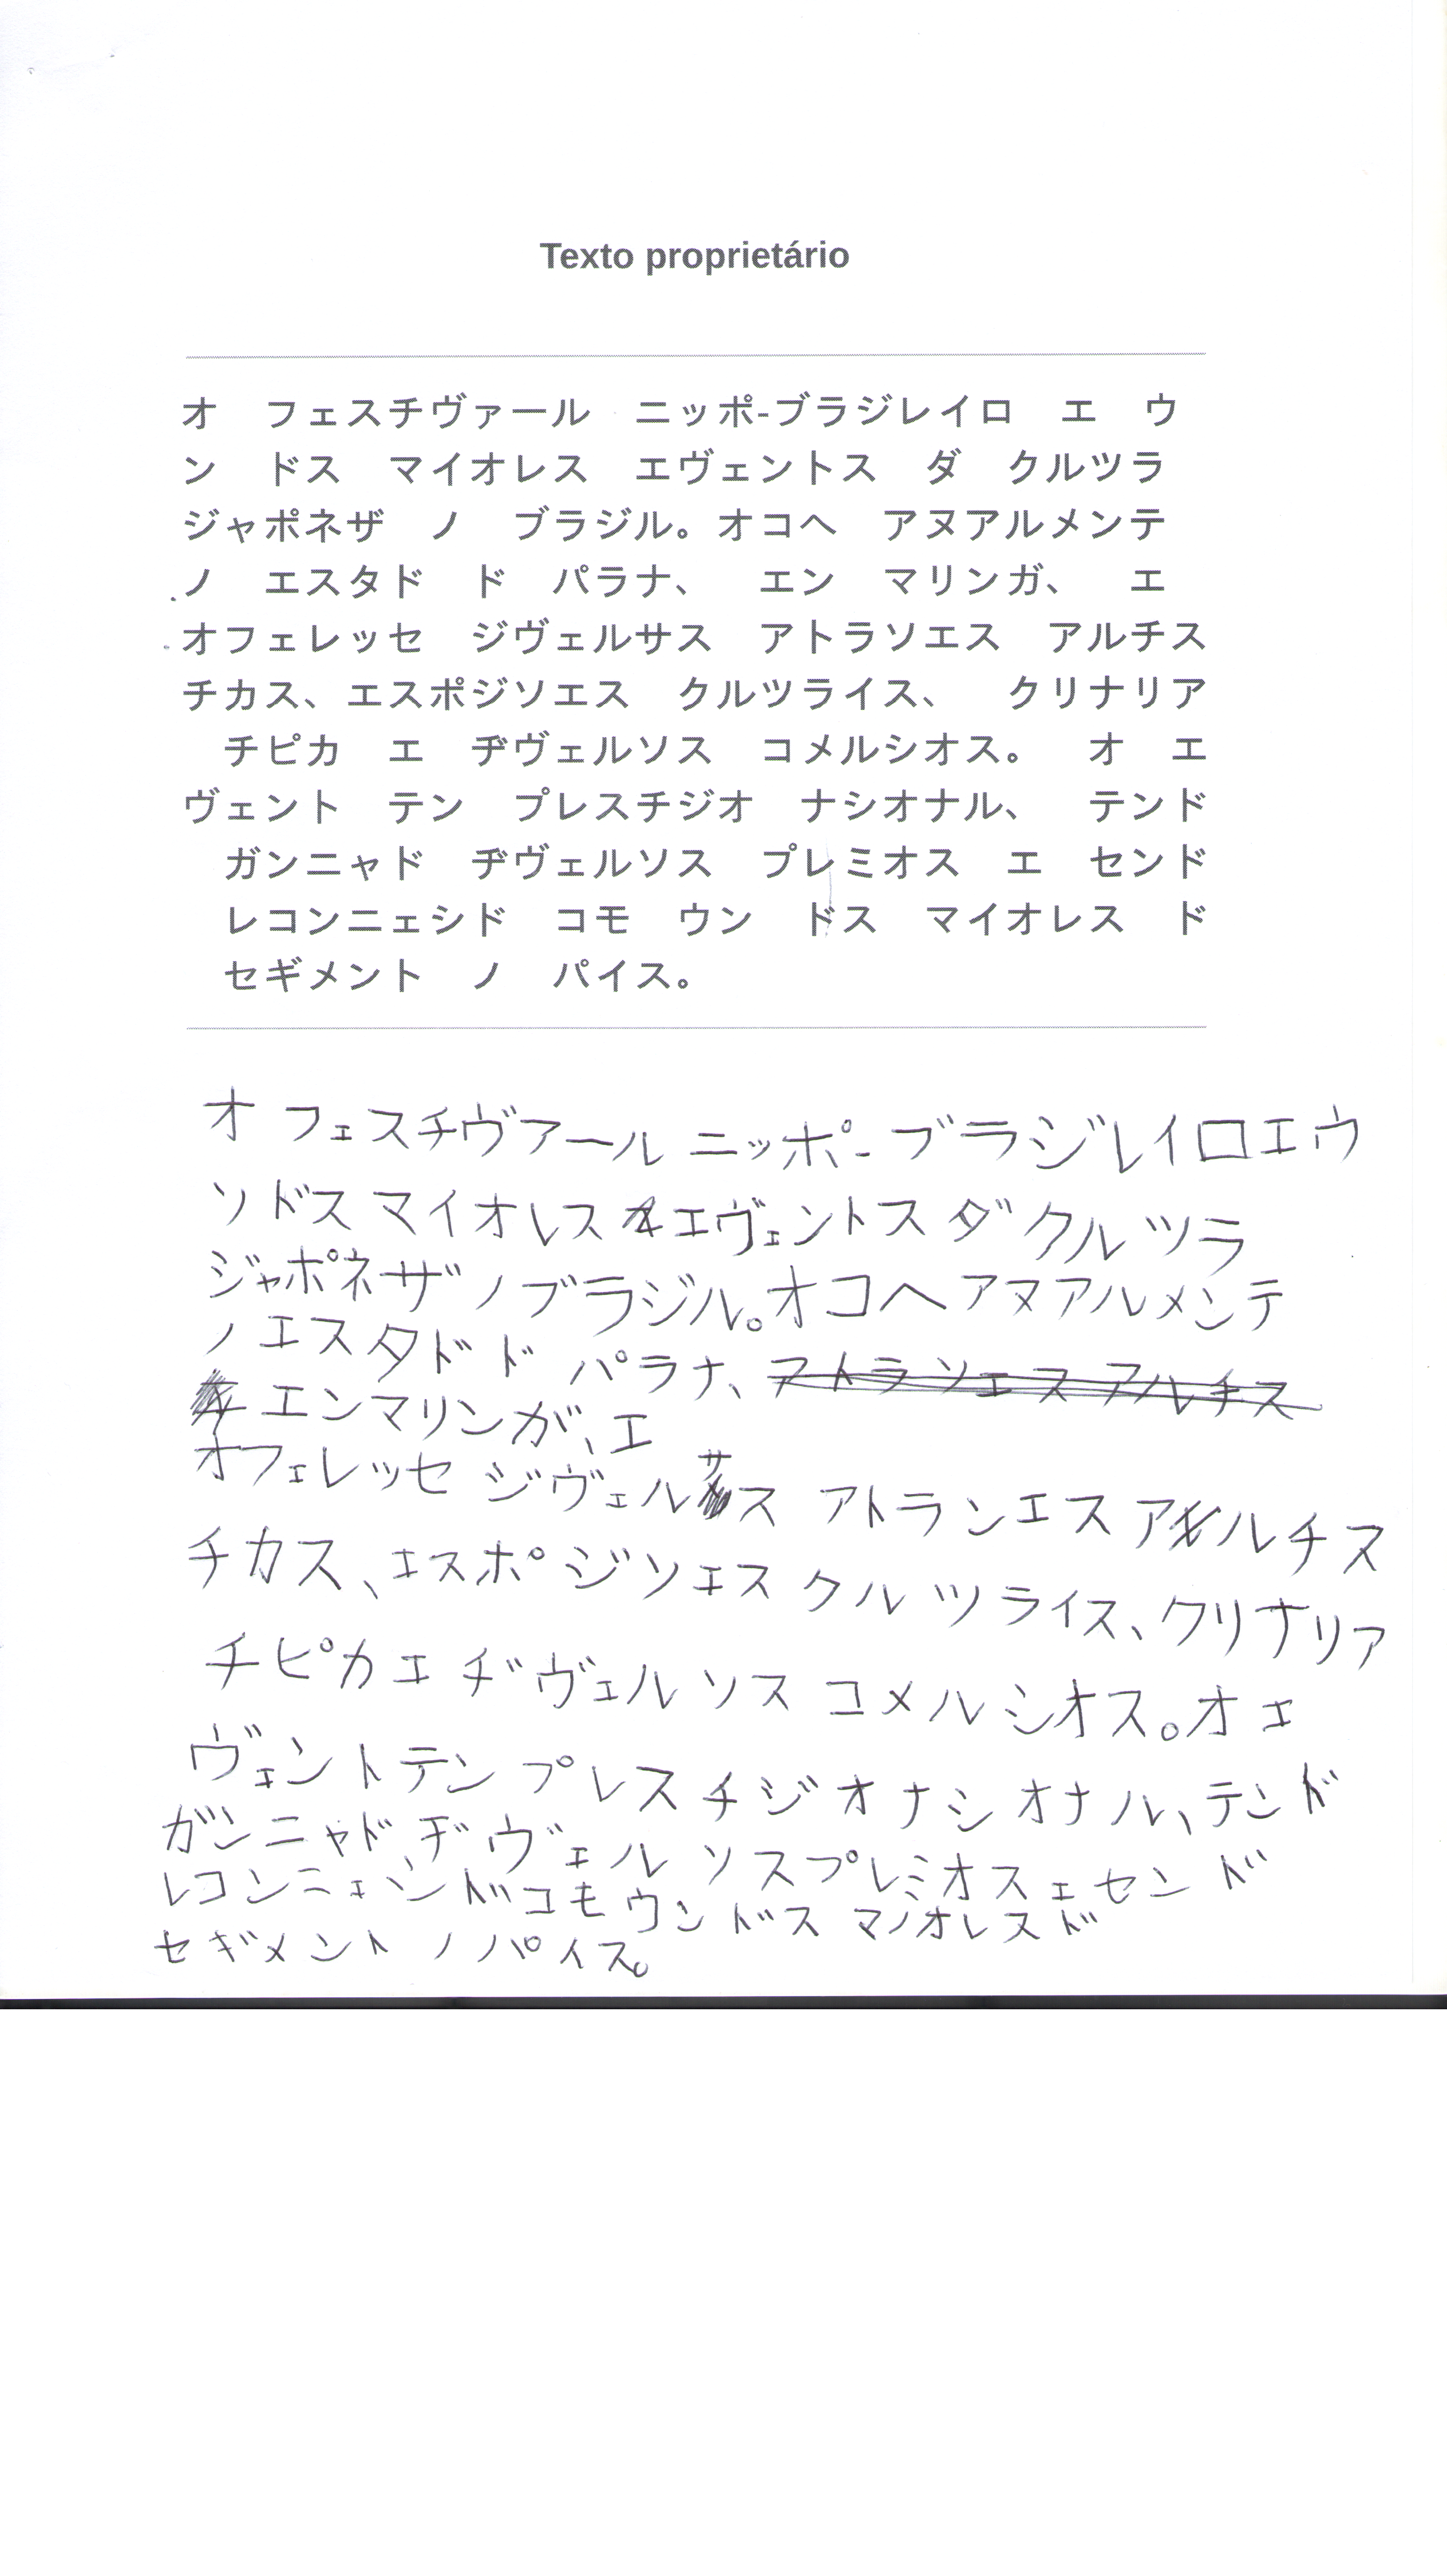 Texto proprietário
オ　フェスチヴァール　ニッポ-ブラジレイロ　エ　ウ
ン　ドス　マイオレス　エヴェントス　ダ　クルツラ
ジャポネザ　ノ　ブラジル。オコヘ　アヌアルメンテ
ノ　エスタド　ド　パラナ、　エン　マリンガ、　エ
オフェレッセ　ジヴェルサス　アトラソエス　アルチス
チカス、エスポジソエス　クルツライス、　クリナリア
チピカ　エ　ヂヴェルソス　コメルシオス。　オ　エ
ヴェント　テン　プレスチジオ　ナシオナル、　テンド
ガンニャド　ヂヴェルソス　プレミオス　エ　センド
レコンニェシド　コモ　ウン　ドス　マイオレス　ド
セギメント　ノ　パイス。
オ フェスチヴアール ニッポ-ブラジレイロエウ
ソドス マイオレス エヴェントス ダ クルツラ
ジャポネザ ノブラジル。オコヘ アヌアルメンテ
ノ エスタド ド パラナ、アトラソエス アルチス
エンマリンガ、エ
オフェレッセ ジヴェルサス アトランエス アルチス
チカス、エスポジソエス クルツライス、クリナリア
チピカエ ヂヴェルソス コメルシオス。オエ
ヴェント テン プレスチジオ ナシオナル、テンド
ガンニャド ヂヴェルソスプレミオスエセンド
レコンニェシドコモウンドス マイオレスド
セギメント ノ パイス。